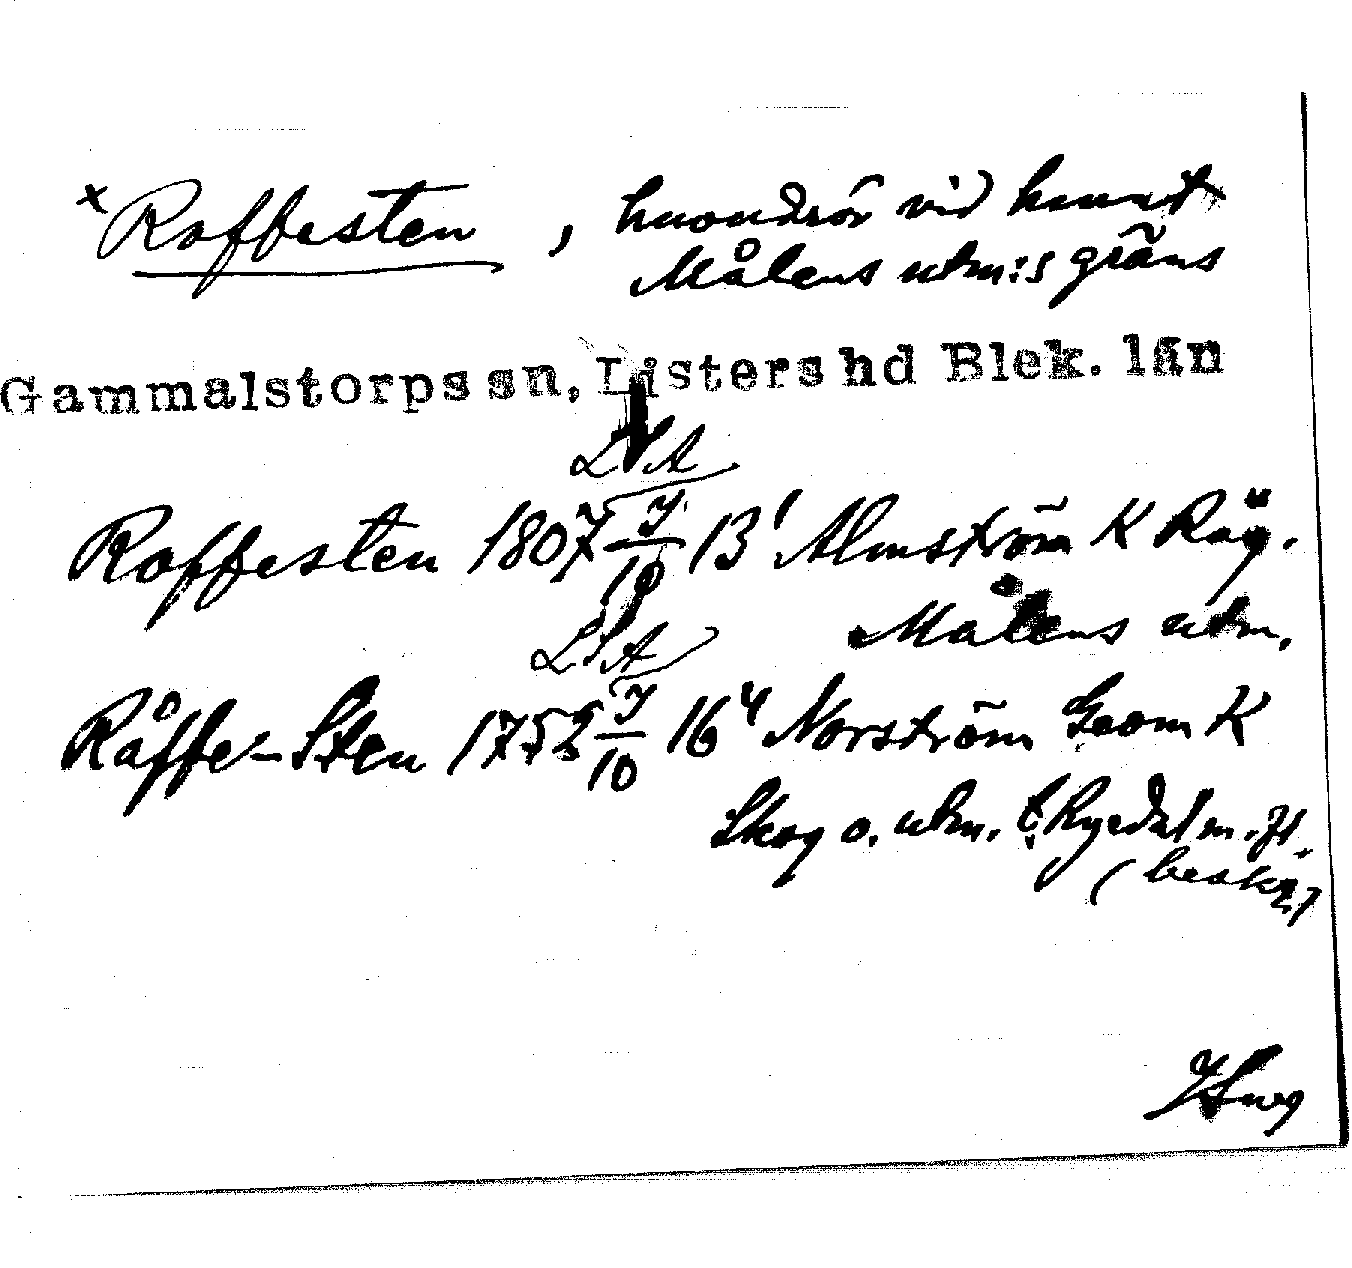 x Roffesten, hvondrör vid hvart
Målens utm:s gräns
Gammalstorps sn, Listers hd Blek. län
LSA
Roffesten 1807 J/10 13¹ Almström K Räg.
Målens utm.
LSA
Råffe-Sten 1752 J/10 16⁴ Norström Geom K
Skog o. utm. t. Ryedal m. fl.
(beskr.)